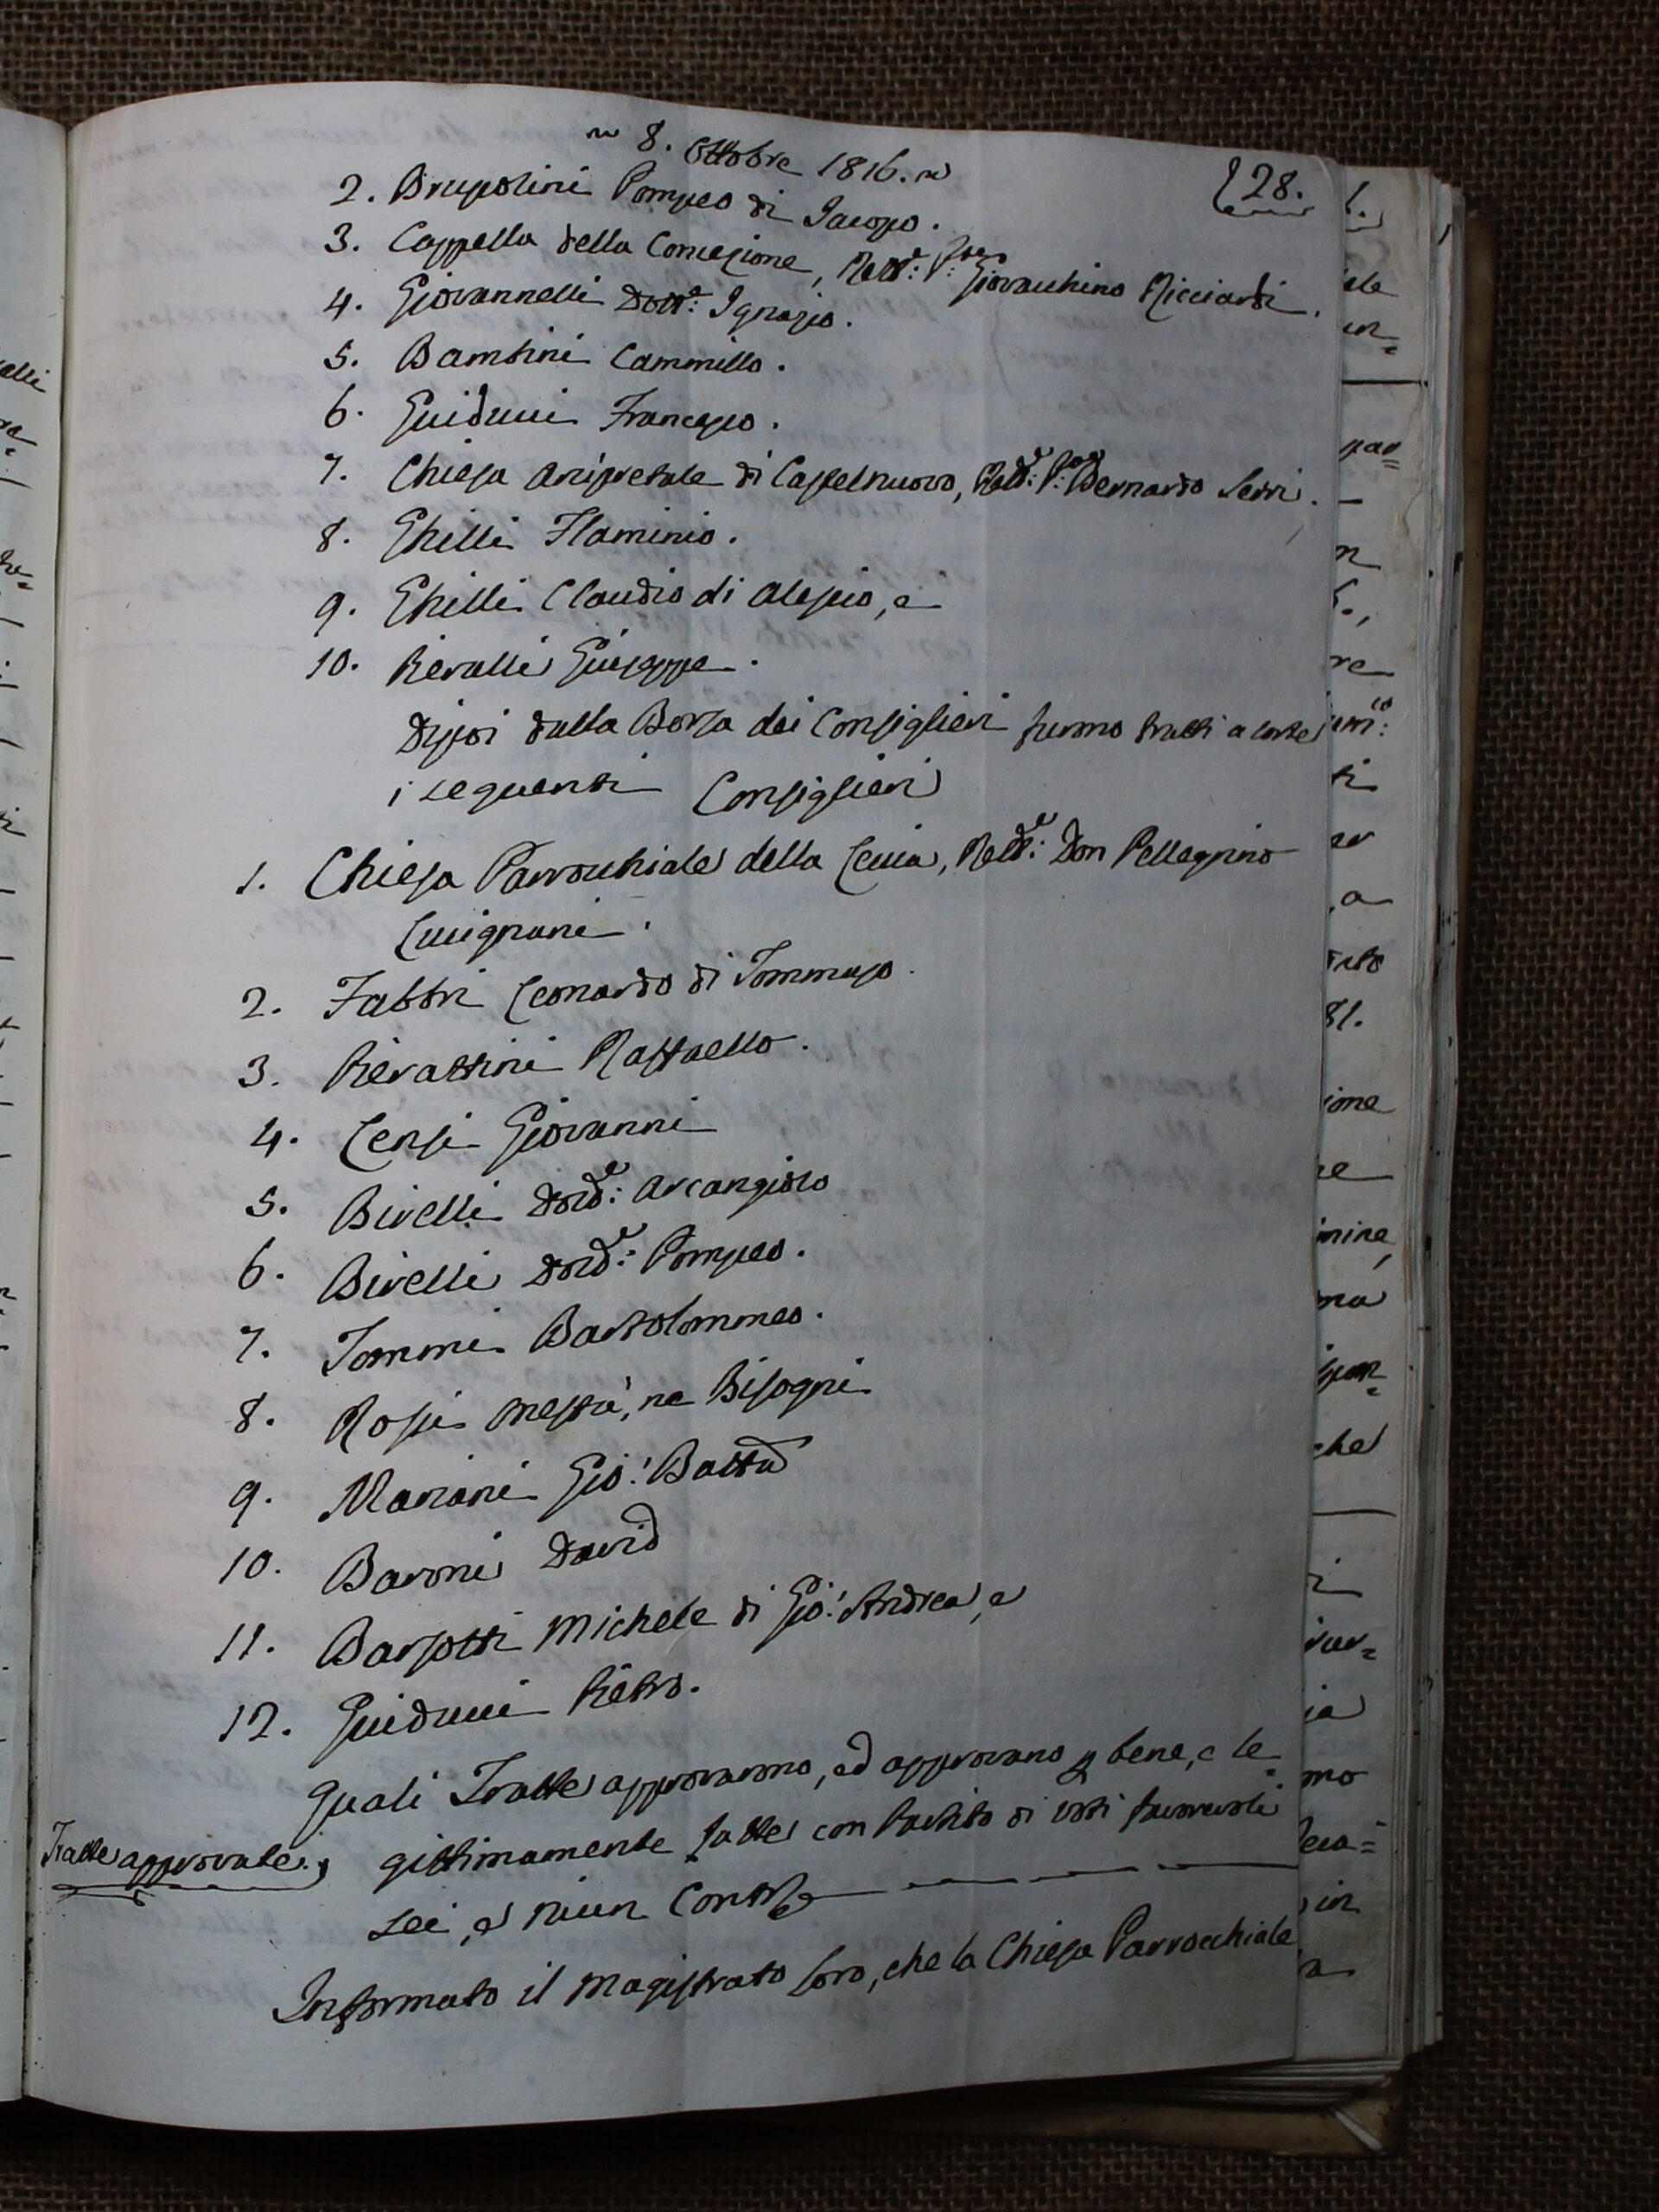 8. Ottobre 1816.
128.
2. Brupolini Pompeo di Jacopo.
3. Cappella della Concezione, Rett:e P: Giovacchino Ricciardi.
4. Giovannelli Dott:e Ignazio.
5. Bambini Cammillo.
6. Guiducci Francesco.
7. Chiesa Arcipretale di Castelnuovo, Rett:e P: Bernardo Serri.
8. Ghilli Flaminio.
9. Ghilli Claudio di Alessio, e
10. Pievalli Giuseppe.
Dipoi dalla Borsa dei Consiglieri furono tratti a sorte
i seguenti Consiglieri
1. Chiesa Parrocchiale della Leccia, Rett:e Don Pellegrino
Lucignani.
2. Fabbri Leonardo di Tommaso.
3. Pievattini Raffaello.
4. Lensi Giovanni
5. Bicelli Dott:e Arcangiolo
6. Bicelli Dott:e Pompeo.
7. Tommi Bartolommeo.
8. Rossi Mestà, ne Bisogni
9. Mariani Gio: Batta
10. Baroni David
11. Barsotti Michele di Gio: Andrea, e
12. Guiducci Pietro.
Quali Tratte approvarono, ed approvano p bene, e le=
Tratte approvate.
gittimamente fatte con Partito di voti favorevoli
sei, e niun Contr.º
Informato il Magistrato loro, che la Chiesa Parrocchiale